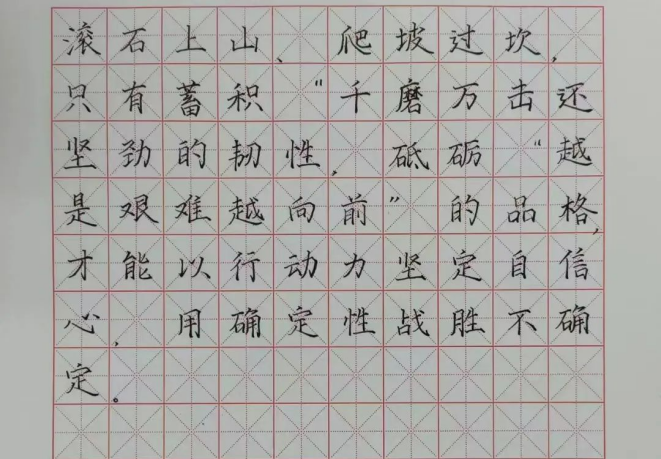 滚石上山、爬坡过坎，
只有蓄积“千磨万击还
坚劲的韧性，砥砺“越
是艰难越向前”的品格，
才能以行动力坚定自信
心，用确定性战胜不确
定。